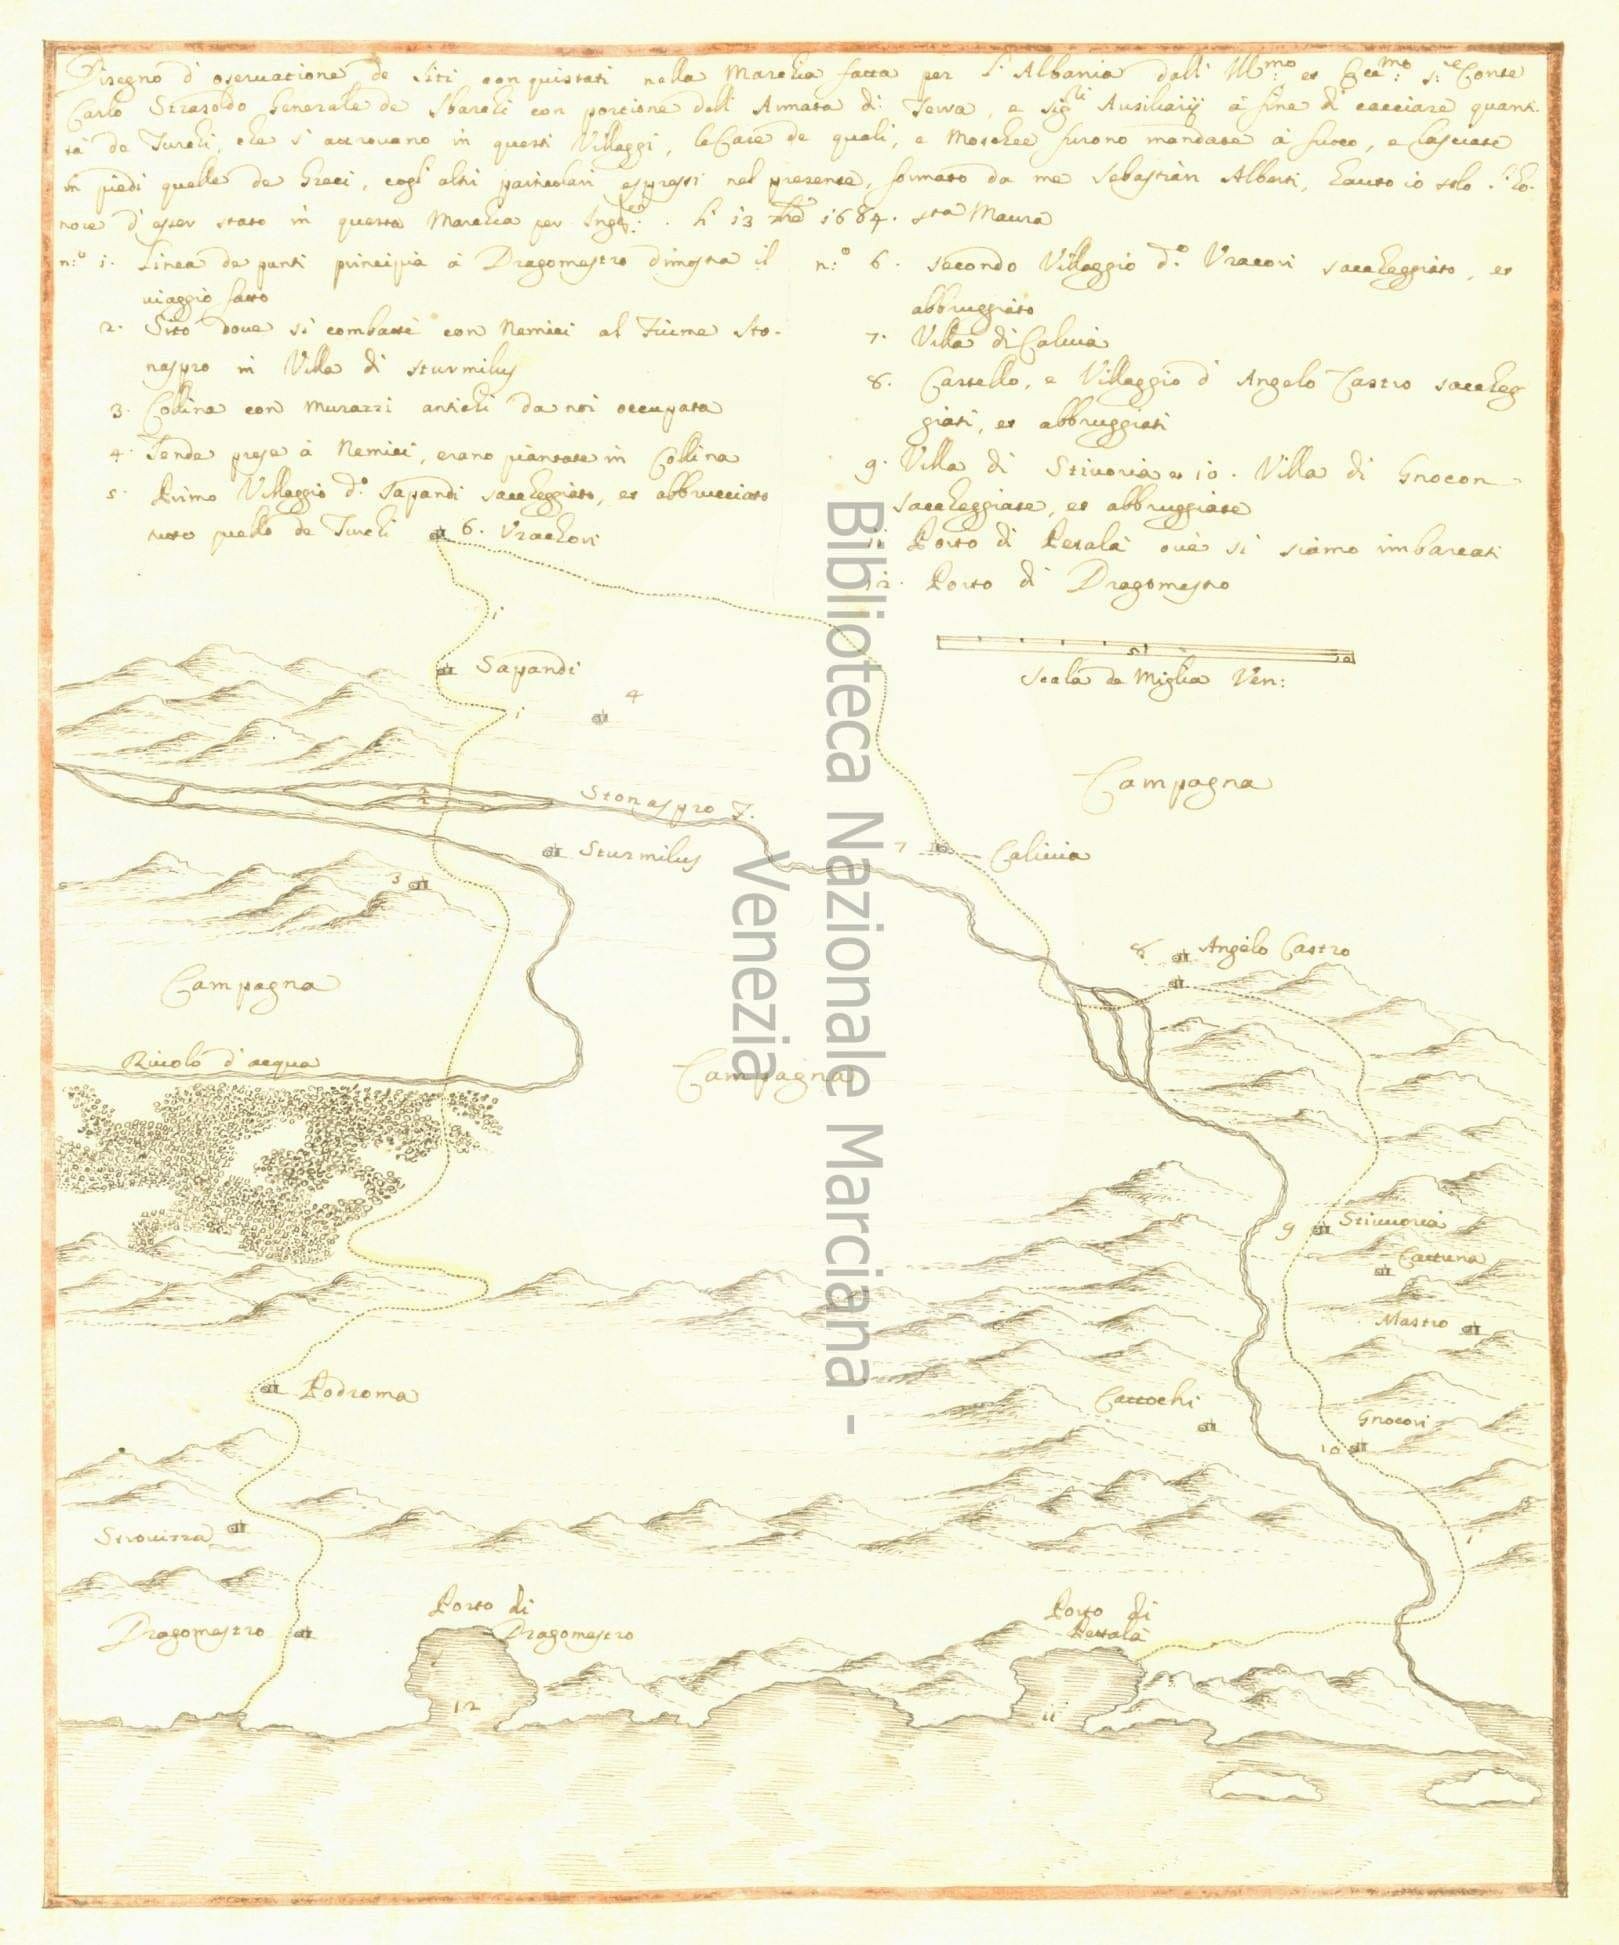 Disegno d'oseruatione de siti conquistati nella Marchia fatta per l'Albania dall' Ill:mo et Ecc:mo S:re Conte
Carlo Strasoldo Generale de Sbarchi con portione dell' Armata di Terra, e Sig:li Ausiliarij à fine di cacciare quanti-
tà de Turchi, che s'attrouano in questi Villaggi, le Case de quali, e Moschee furono mandate à fuoco, e lasciate
in piedi quelle de Greci, cogl'altri particolari espressi nel presente, formato da me Sebastiàn Alberti, hauuto io solo l'ho-
nore d'esser stato in questa Marchia per Ing:er: . li 13 1684. Sta Maura
n:o 1. Linea de punti principia à Dragomestro dimostra il
uiaggio fatto
2. Sito doue si combatté con Nemici al Fiume Sto-
naspro in Villa di Sturmilus
3. Collina con murazzi antichi da noi occupata
4. Tende prese à Nemici, erano piantate in Collina
5. Primo Villaggio d:o Sapandi saccheggiato, et abbrucciato
tutto quello de Turchi
n:o 6. secondo Villaggio d:o Vracori saccheggiato, et
abbruggiato
7. Villa di Caliuia
8. Castello, e Villaggio d'Angelo Castro saccheg-
giati, et abbruggiati
9. Villa di Stiuoria et 10. Villa di Gnocori
saccheggiate, et abbruggiate
11. Porto di Petalà oue si siamo imbarcati
12. Porto di Dragomestro
6. Vrachori
1
Scala de Miglia Ven:
5
10
Sapandi
1
4
Campagna
2
2
Stonaspro F.
Sturmilus
7
Caliuia
3
8
Angelo Castro
Campagna
Riuolo d'acqua
Campagna
9
Stiuoria
Cattuna
Mastro
Podroma
Cattochi
Gnocori
10
1
Strouizza
Dragomestro
Porto di
Dragomestro
Porto di
Pettalà
12
11
Biblioteca Nazionale Marciana -
Venezia